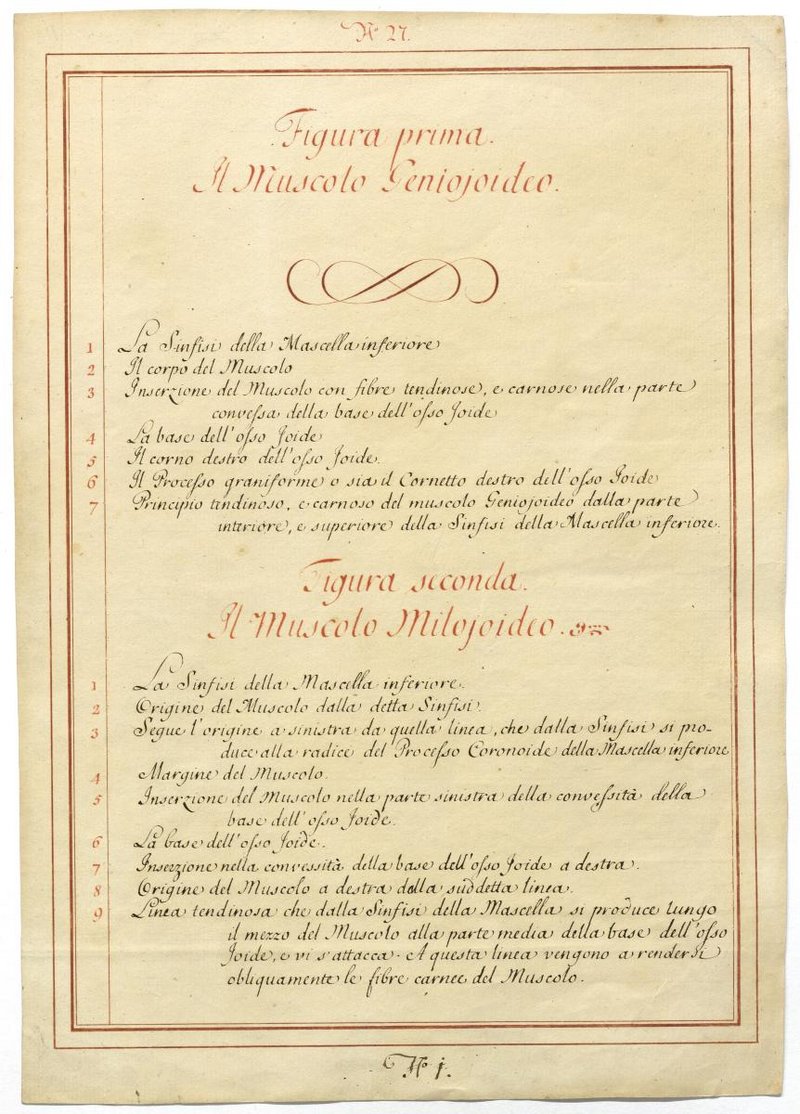 N.º 27.
Figura prima.
Il Muscolo Geniojoideo.
1 La Sinfisi della Mascella inferiore
2 Il corpo del Muscolo
3 Inserzione del Muscolo con fibre tendinose, e carnose nella parte
convessa della base dell'osso Joide
4 La base dell'osso Joide
5 Il corno destro dell'osso Joide.
6 Il Processo graniforme o sia il Cornetto destro dell'osso Joide
7 Principio tendinoso, e carnoso del muscolo Geniojoideo dalla parte
interiore, e superiore della Sinfisi della Mascella inferiore.
Figura seconda.
Il Muscolo Milojoideo.
1 La Sinfisi della Mascella inferiore.
2 Origine del Muscolo dalla detta Sinfisi.
3 Segue l'origine a sinistra da quella linea, che dalla Sinfisi si pro-
duce alla radice del Processo Coronoide della Mascella inferiore
4 Margine del Muscolo.
5 Inserzione del Muscolo nella parte sinistra della convessità della
base dell'osso Joide.
6 La base dell'osso Joide.
7 Inserzione nella convessità della base dell'osso Joide a destra.
8 Origine del Muscolo a destra della suddetta linea.
9 Linea tendinosa che dalla Sinfisi della Mascella si produce lungo
il mezzo del Muscolo alla parte media della base dell'osso
Joide, e vi s'attacca. A questa linea vengono a rendersi
obliquamente le fibre carnee del Muscolo.
Nº 1.